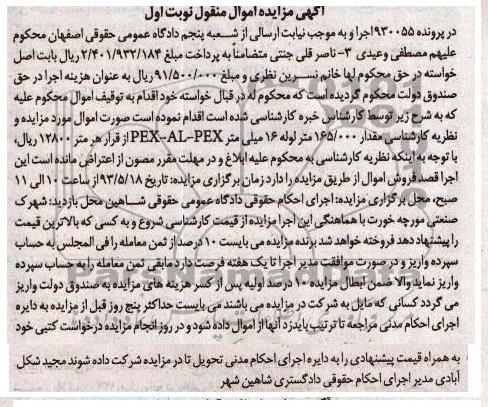 آگهی مزایده اموال منقول نوبت اول
در پرونده ۹۳۰۰۵۵ اجرا و به موجب نیابت ارسالی از شعبه پنجم دادگاه عمومی حقوقی اصفهان محکوم
علیهم مصطفی وعیدی ۳- ناصر قلی جنتی متضامناً به پرداخت مبلغ ۲/۴۰۱/۹۳۲/۱۸۴ ریال بابت اصل
خواسته در حق محکوم لها خانم نسرین نظری و مبلغ ۹۱/۵۰۰/۰۰۰ ریال به عنوان هزینه اجرا در حق
صندوق دولت محکوم گردیده است که محکوم له در قبال خواسته خود اقدام به توقیف اموال محکوم علیه
که به شرح زیر توسط کارشناس خبره کارشناسی شده است اقدام نموده است صورت اموال مورد مزایده و
نظریه کارشناسی مقدار ۱۶۵/۰۰۰ متر لوله ۱۶ میلی متر PEX-AL-PEX از قرار هر متر ۱۲۸۰۰ ریال،
با توجه به اینکه نظریه کارشناسی به محکوم علیه ابلاغ و در مهلت مقرر مصون از اعتراض مانده است این
اجرا قصد فروش اموال از طریق مزایده را دارد زمان برگزاری مزایده: تاریخ ۹۳/۵/۱۸ از ساعت ۱۰ الی ۱۱
صبح، محل برگزاری مزایده: اجرای احکام حقوقی دادگاه عمومی حقوقی شاهین شهر محل بازدید: شهرک
صنعتی مورچه خورت با هماهنگی این اجرا مزایده از قیمت کارشناسی شروع و به کسی که بالاترین قیمت
را پیشنهاد دهد فروخته خواهد شد برنده مزایده می بایست ۱۰ درصد از ثمن معامله را فی المجلس به حساب
سپرده واریز و در صورت موافقت مدیر اجرا تا یک هفته فرصت دارد مابقی ثمن معامله را به حساب سپرده
واریز نماید والا ضمن ابطال مزایده ۱۰ درصد اولیه پس از کسر هزینه های مزایده به صندوق دولت واریز
می گردد کسانی که مایل به شرکت در مزایده می باشند می بایست حداکثر پنج روز قبل از مزایده به دایره
اجرای احکام مدنی مراجعه تا ترتیب بازدید آنها از اموال داده شود و در روز انجام مزایده درخواست کتبی خود
به همراه قیمت پیشنهادی را به دایره اجرای احکام مدنی تحویل تا در مزایده شرکت داده شوند مجید شکل
آبادی مدیر اجرای احکام حقوقی دادگستری شاهین شهر
ParsNamadData